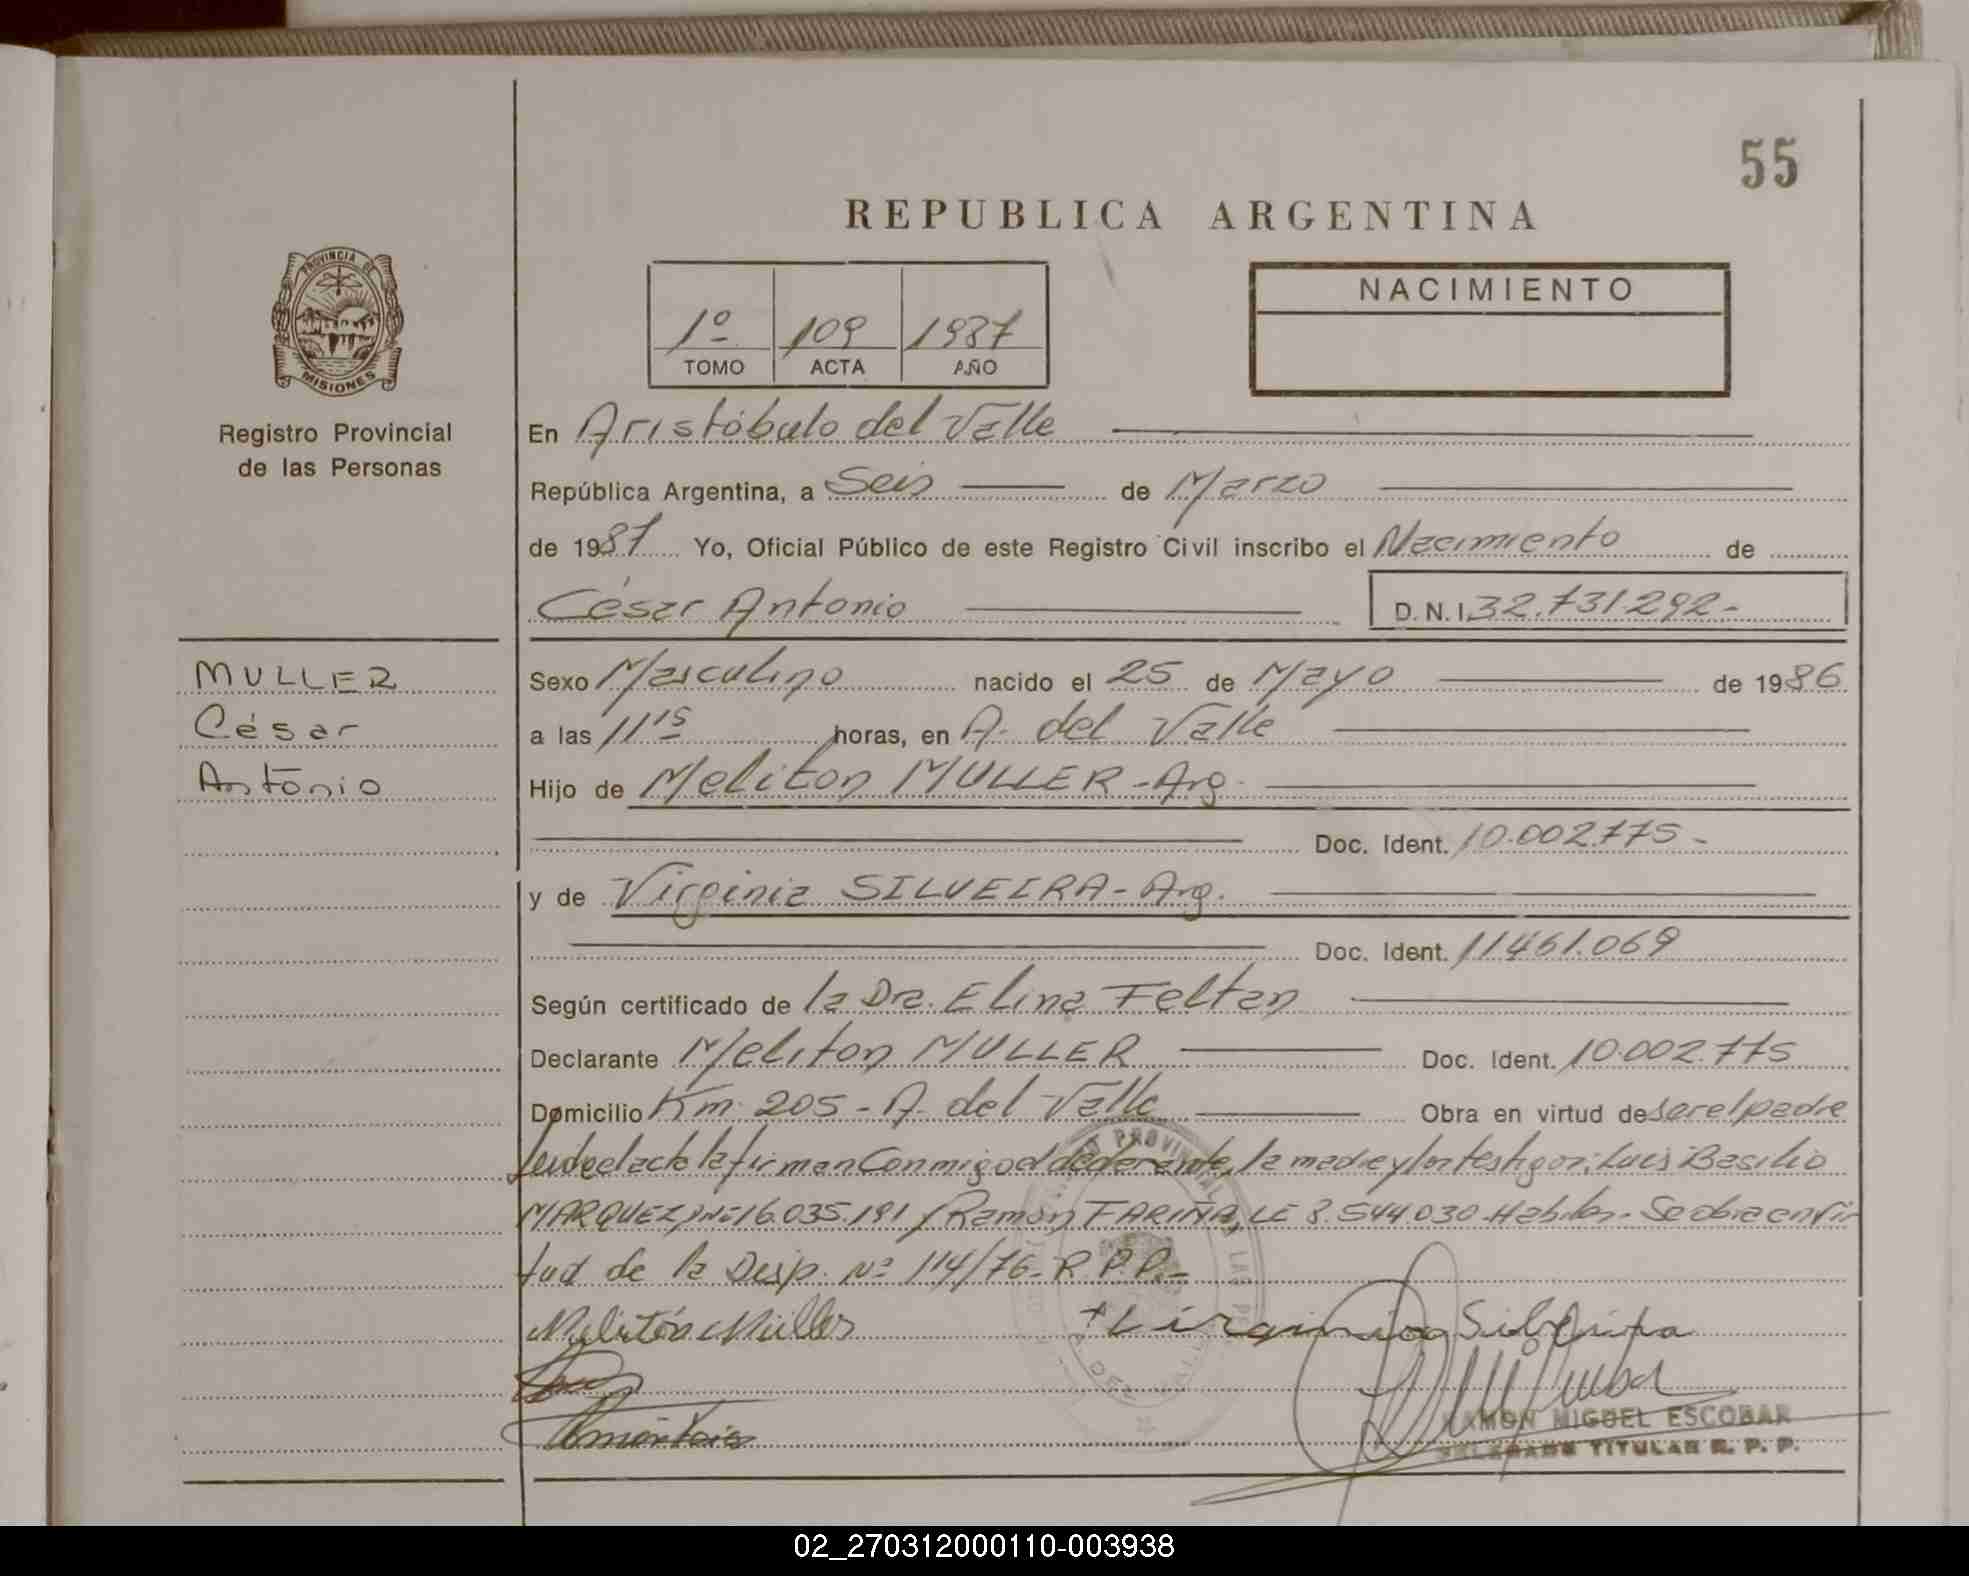 55
REPUBLICA ARGENTINA
PROVINCIA DE
MISIONES
Registro Provincial
de las Personas
1º 109 1987
TOMO ACTA AÑO
NACIMIENTO
En Aristóbulo del Valle
República Argentina, a Seis de Marzo
de 1987 Yo, Oficial Público de este Registro Civil inscribo el Nacimiento de
César Antonio D.N.I. 32.731.292-
MULLER
César
Antonio
Sexo Masculino nacido el 25 de Mayo de 1986
a las 11 15 horas, en A. del Valle
Hijo de Meliton MULLER - Arg.
Doc. Ident. 10.002.775-
y de Virginia SILVEIRA - Arg.
Doc. Ident. 11.461.069
Según certificado de la Dra. Elina Feltan
Declarante Meliton MULLER Doc. Ident. 10.002.775
Domicilio Km. 205 - A. del Valle Obra en virtud de ser el padre
Leida el acta la firman conmigo el declarante, la madre y los testigos: Luis Basilio
MARQUEZ, Nº 16.035.191 y Ramón FARIÑA, LE 8.544.030 Habiles. Se obra en vir
tud de la Disp. Nº 114/76- R.P.P.-
Melitón Muller Virginia Silveira
RAMON MIGUEL ESCOBAR
DELEGADO TITULAR R. P. P.
02_270312000110-003938